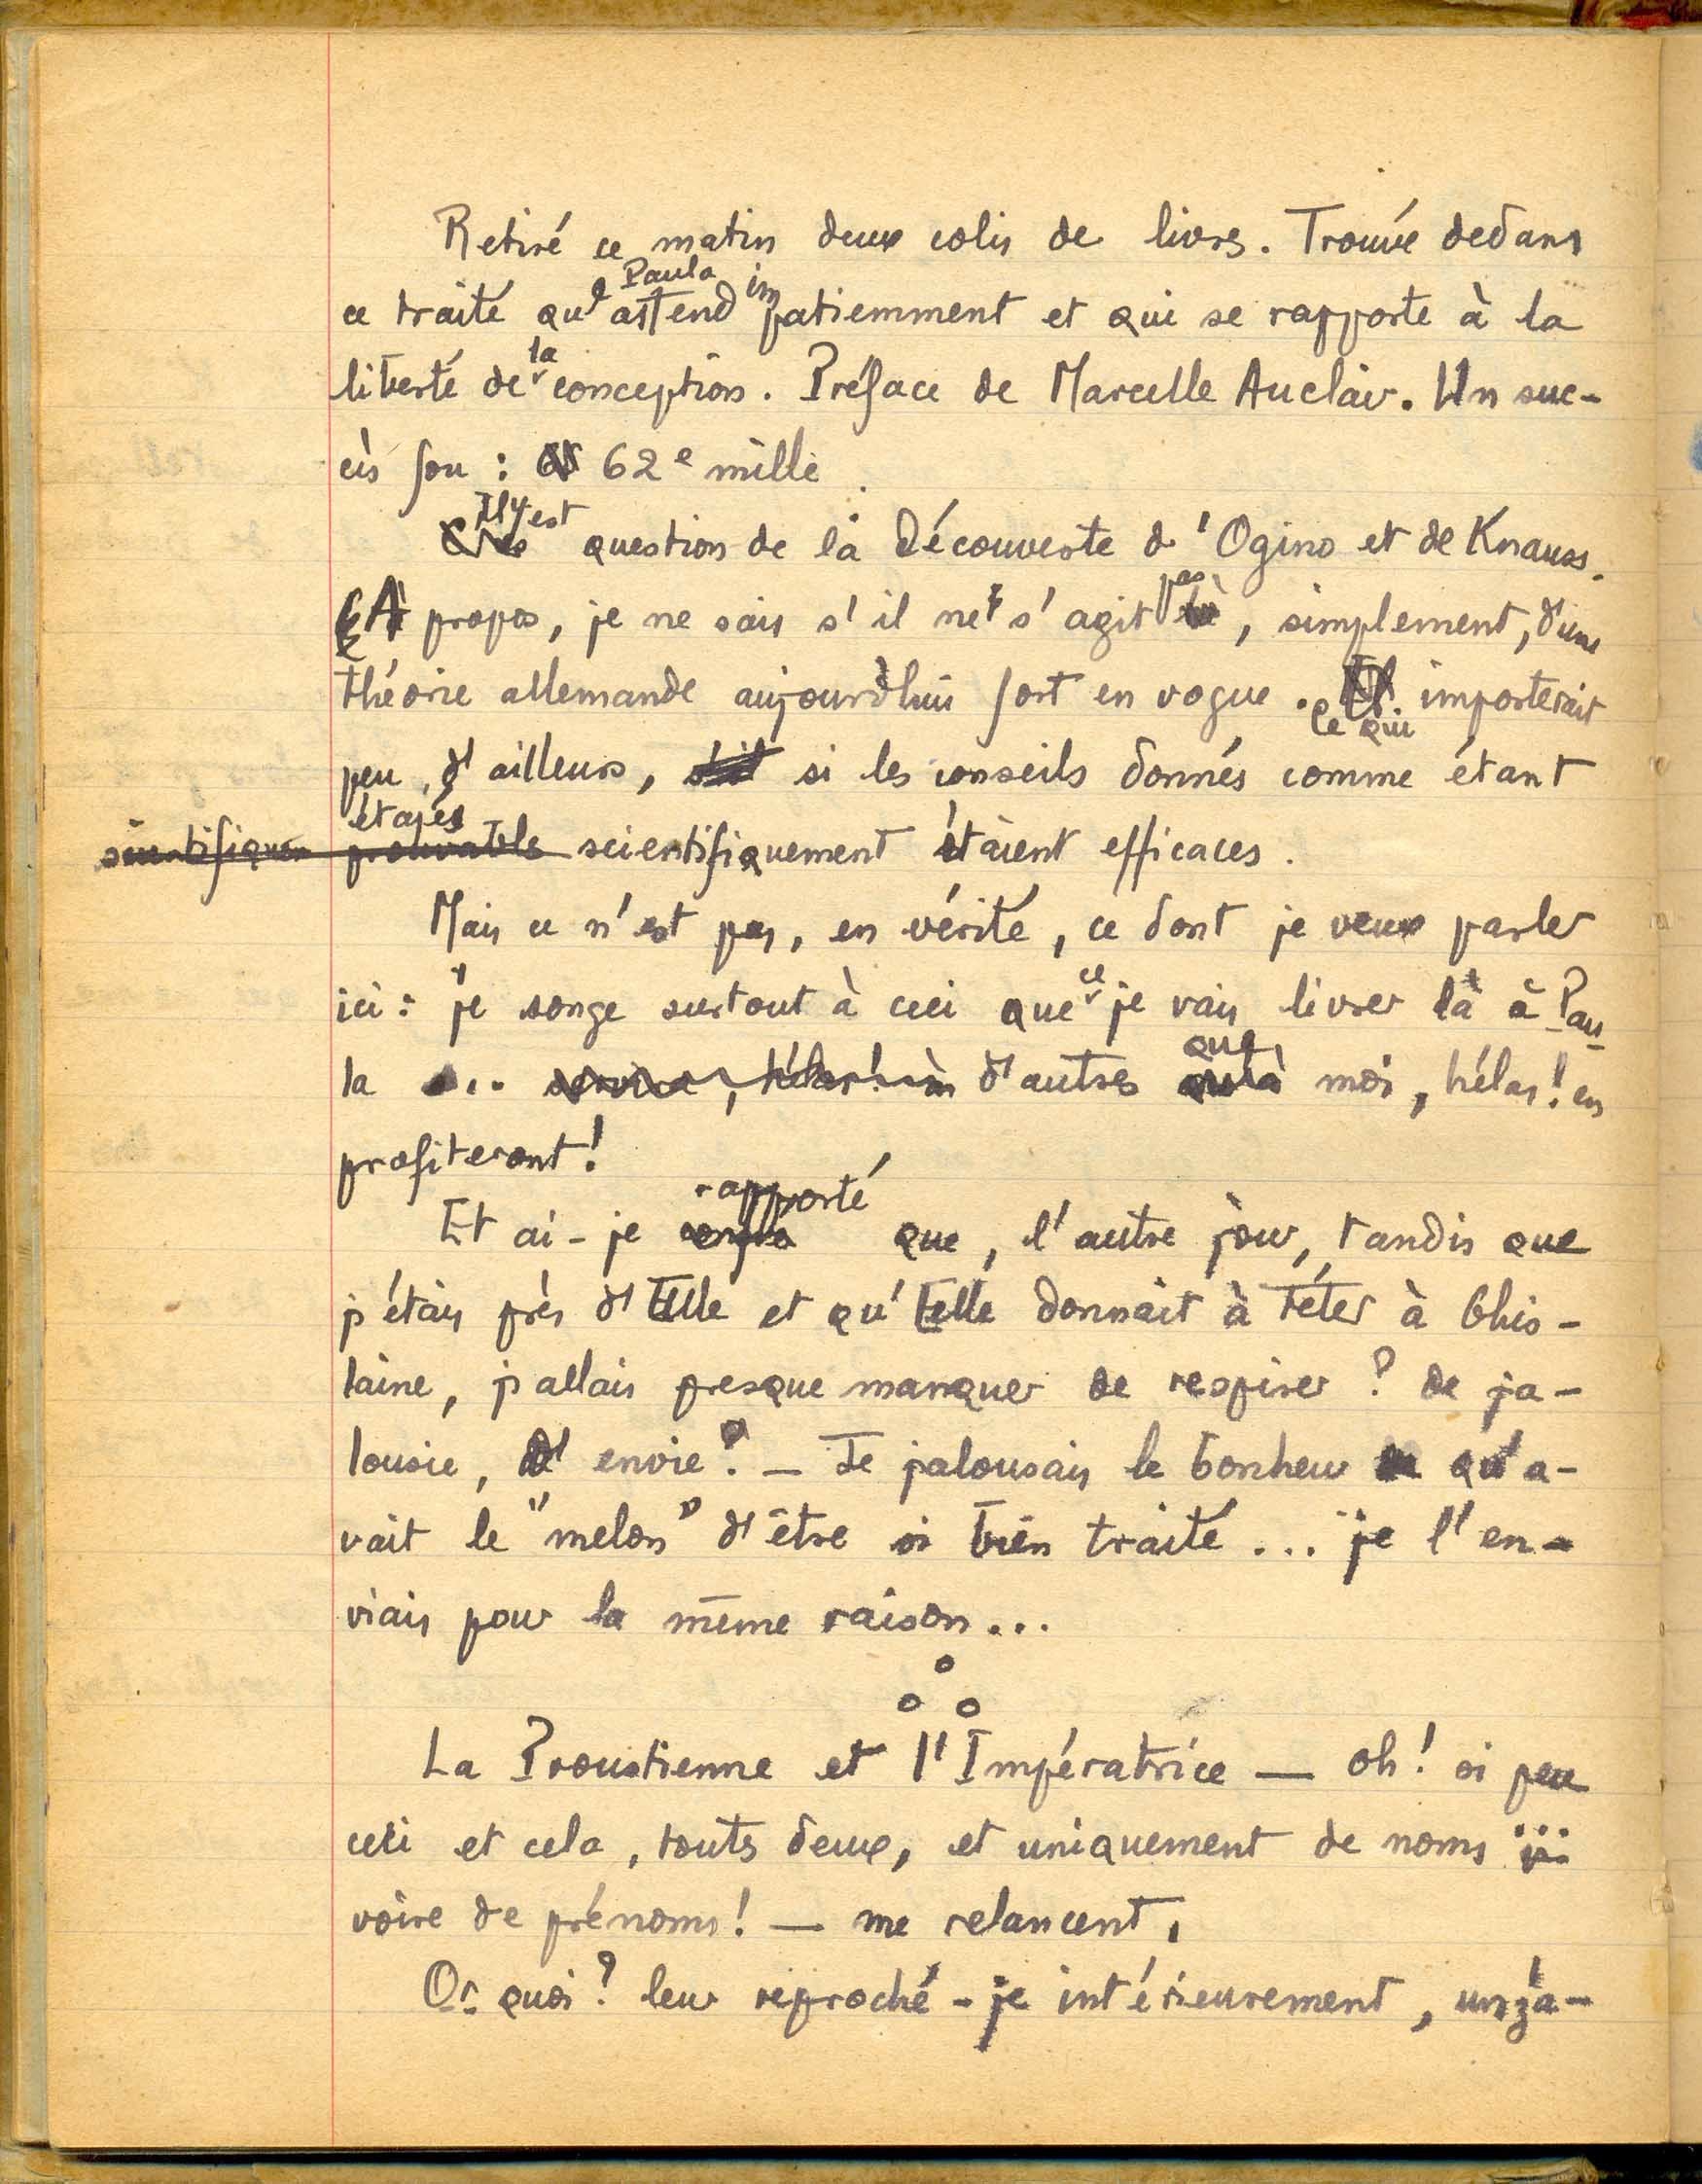 Retiré ce matin deux colis de livres. Trouvé dedans
ce traité que Paula attend impatiemment et qui se rapporte à la
liberté de la conception. Préface de Marcelle Auclair. Un suc-
cès fou : 62e mille.
Il y est question de la Découverte d'Ogino et de Knauss.
À propos, je ne sais s'il ne s'agit pas, simplement, d'une
théorie allemande aujourd'hui fort en vogue. Ce qui importerait
peu, d'ailleurs, si les conseils donnés comme étant
étayés scientifiquement étaient efficaces.
Mais ce n'est pas, en vérité, ce dont je veux parler
ici : je songe surtout à ceci que ce je vais livrer là à Pau-
la ... d'autres que moi, hélas! en
profiteront!
Et ai-je rapporté que, l'autre jour, tandis que
j'étais près d'Elle et qu'Elle donnait à téter à Ghis-
laine, j'allais presque manquer de respirer? de ja-
lousie, d'envie? — Je jalousais le bonheur qu'a-
vait le "melon" d'être si bien traité... je l'en-
viais pour la même raison...
La Proustienne et l'Impératrice — oh! si peu
ceci et cela, touts deux, et uniquement de noms ...
voire de prénoms! — me relancent.
Or quoi? leur reproché-je intérieurement,